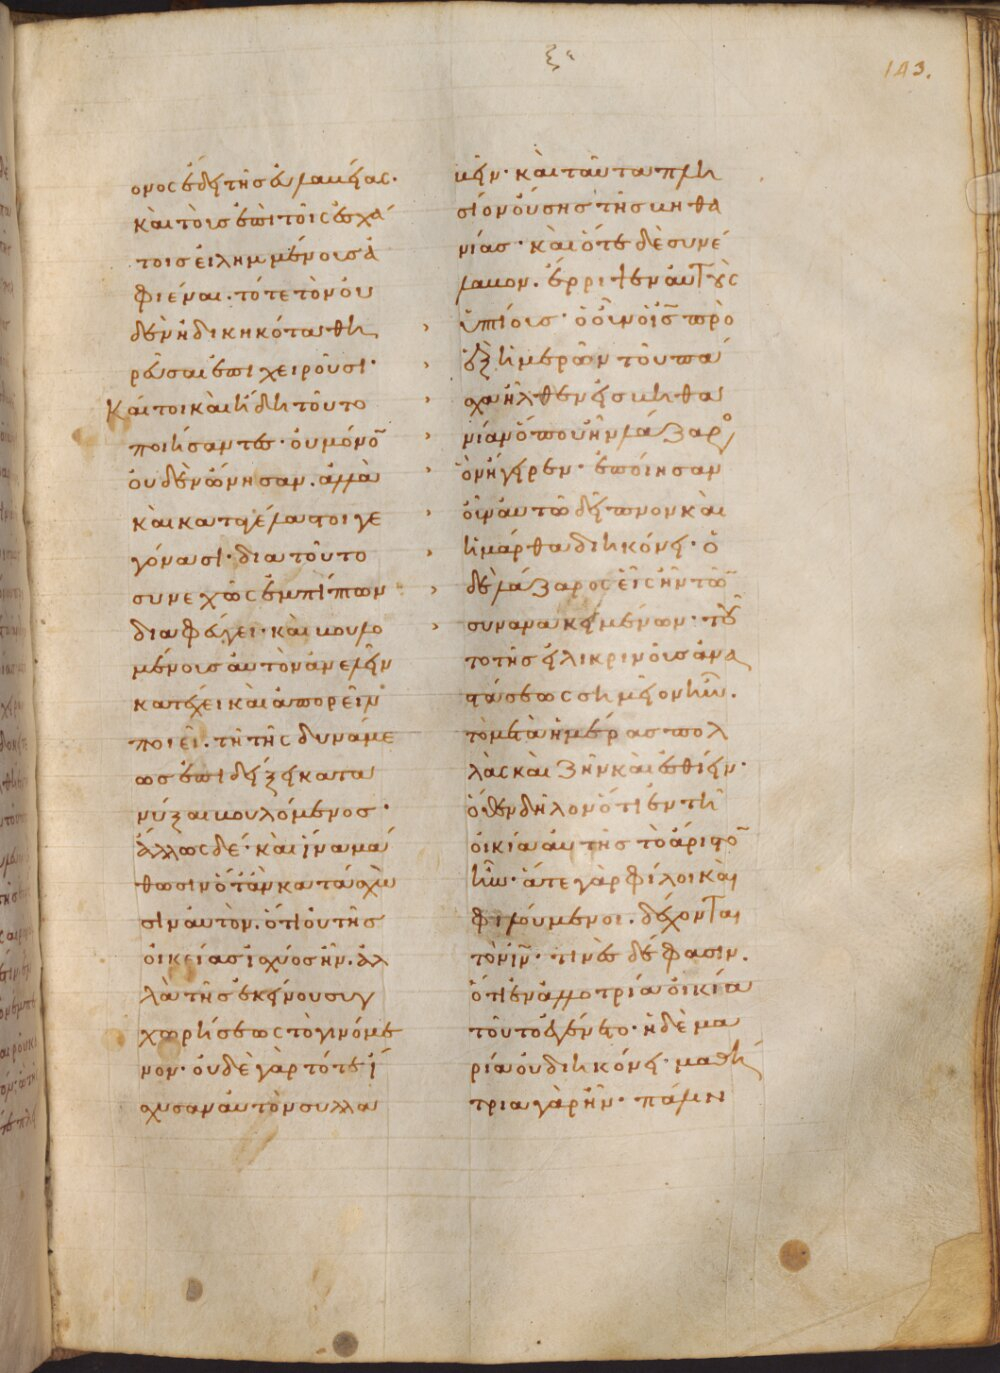 ξϛ
143.
ονος ἐδε τῆς εὐλαβείας·
καὶ τοῖς ἐπὶ τοῖς ἐσχά
τοις εἰλημμένοις ἀ
φιέναι· τότε τὸν οὐ
δὲν ἠδικηκότα θη
ρεῦσαι ἐπιχειροῦσι·
Καίτοι καὶ ἤδη τοῦτο
ποιήσαντες· οὐ μόνον
οὐδὲν ὤνησαν. ἀλλὰ
καὶ καταγέλαστοι γε
γόνασι· διὰ τοῦτο
συνεχῶς ἐμπίπτων
διαφεύγει· καὶ βουλο
μένοις αὐτὸν ἀνελεῖν
κατέχει καὶ ἀπορεῖν
ποιεῖ. τῇ τῆς δυνάμε
ως ἐπιδείξει κατα
νύξαι βουλόμενος·
ἄλλως δέ· καὶ ἵνα μά
θωσιν ὅταν κατάσχω
σιν αὐτὸν. ὅτι οὐ τῆς
οἰκείας ἰσχύος ἦν. ἀλ
λὰ τῆς ἐκείνου συγ
χωρήσεως τὸ γινόμε
νον· οὐδὲ γὰρ τότε ἴ
σχυσαν αὐτὸν συλλα
βεῖν· καὶ ταῦτα πλη
σίον οὔσης τῆς βηθα
νίας· καὶ ὅτε δὲ συνέ
λαβον. ἔρριψεν αὐτοὺς
ὑπτίους· ὁ οὖν ἰς πρὸ
ἓξ ἡμερῶν τοῦ πά
σχα ἦλθεν εἰς βηθα
νίαν ὅπου ἦν λάζαρος
ὃν ἤγειρεν· ἐποίησαν
οὖν αὐτῷ δεῖπνον καὶ
ἡ μάρθα διηκόνει· ὁ
δὲ λάζαρος εἷς ἦν τῶν
συνανακειμένων· τοῦ
το τῆς εἰλικρινοῦς ἀνα
στάσεως σημεῖον ἦν.
τὸ μετὰ ἡμέρας πολ
λὰς καὶ ζῆν καὶ ἐσθίειν·
ὅθεν δῆλον ὅτι ἐν τῆ
οἰκία αὐτῆς τὸ ἄριστον
ἦν· ἅτε γὰρ φίλοι καὶ
φιλούμενοι. δέχονται
τὸν ἰν· τινὲς δέ φασιν.
ὅτι ἐν ἀλλοτρία οἰκία
τοῦτο ἐγένετο· ἡ δὲ μα
ρία οὐ διηκόνει· μαθή
τρια γὰρ ἦν· πάλιν